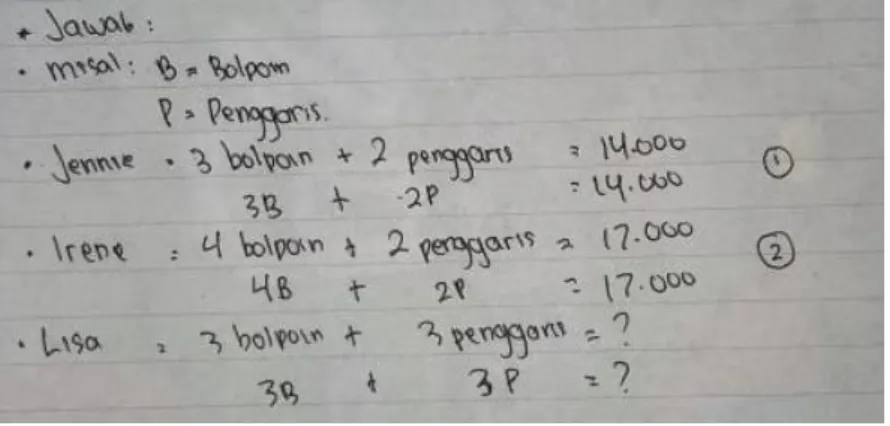 * Jawab :
• misal : B = Bolpoin
P = Penggaris.
• Jennie • 3 bolpoin + 2 penggaris = 14.000 ①
3B + 2P = 14.000
• Irene = 4 bolpoin + 2 penggaris = 17.000 ②
4B + 2P = 17.000
• Lisa = 3 bolpoin + 3 penggaris = ?
3B + 3P = ?